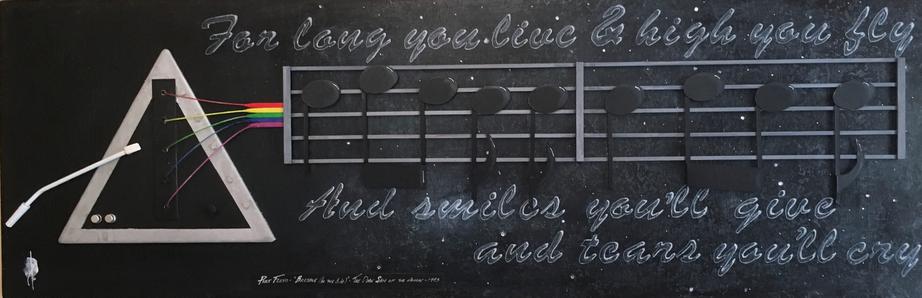 For long you live & high you fly
And smiles you'll give
and tears you'll cry
Pink Floyd - "Breathe (In the Air)" - The Dark Side of the Moon - 1973